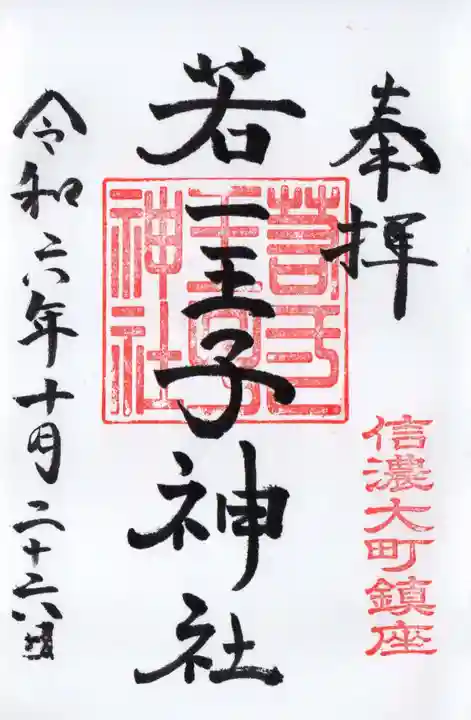 奉拝
信濃大町鎮座
若一王子神社
神社
令和六年十月二十六日